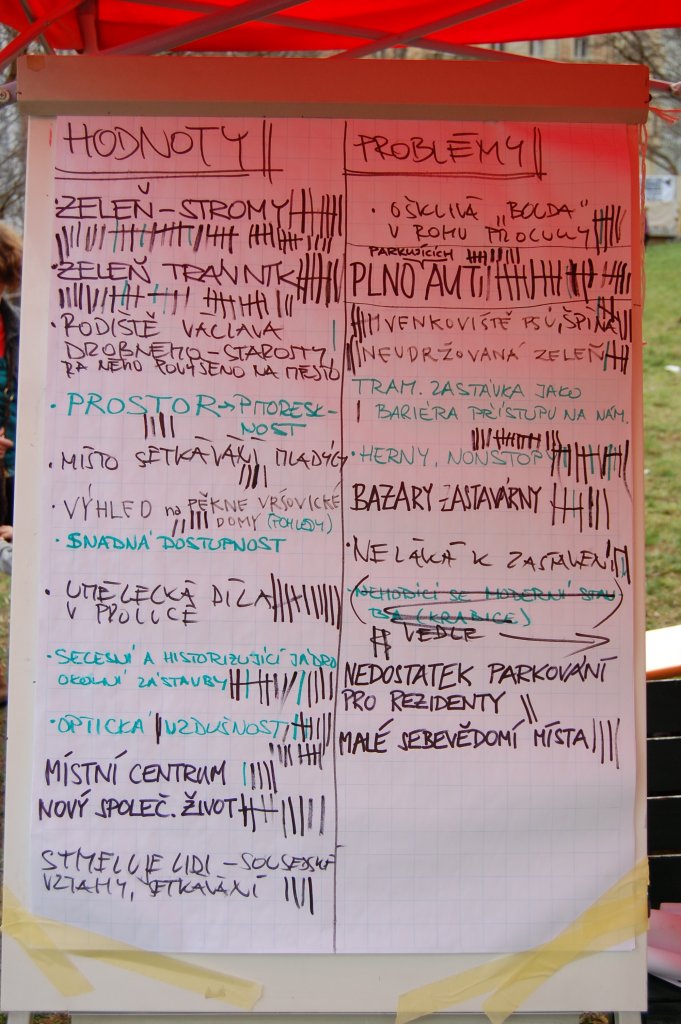 HODNOTY
ZELEŇ-STROMY
ZELEŇ TRÁVNÍK
· RODIŠTĚ VÁCLAVA
DROBNÉHO-STAROSTY,
ZA NĚHO POVÝŠENO NA MĚSTO
· PROSTOR → PITORESK-
NOST
· MÍSTO SETKÁVÁNÍ MLADÝCH
· VÝHLED na PĚKNÉ VRŠOVICKÉ
DOMY (POHLEDY)
· SNADNÁ DOSTUPNOST
· UMĚLECKÁ DÍLA
V
· SECESNÍ A HISTORIZUJÍCÍ JÁDRO
OKOLNÍ ZÁSTAVBY
· OPTICKÁ VZDUŠNOST
MÍSTNÍ CENTRUM
NOVÝ SPOLEČ. ŽIVOT
STMELUJE LIDI - SOUSEDSKÉ
VZTAHY, SETKÁVÁNÍ
PROBLÉMY
· OŠKLIVÁ „BOUDA"
V ROHU
PARKUJÍCÍCH
PLNO AUT
VENKOVIŠTĚ PSŮ, ŠPÍNA
NEUDRŽOVANÁ ZELEŇ
TRAM. ZASTÁVKA JAKO
BARIÉRA PŘÍSTUPU NA NÁM.
· HERNY, NONSTOP
BAZARY ZASTAVÁRNY
· NELÁKÁ K ZASTAVENÍ
· NEHODÍCÍ SE MODERNÍ STAV
BA (KRABICE)
VEDLE →
NEDOSTATEK PARKOVÁNÍ
PRO REZIDENTY
MALÉ SEBEVĚDOMÍ MÍSTA